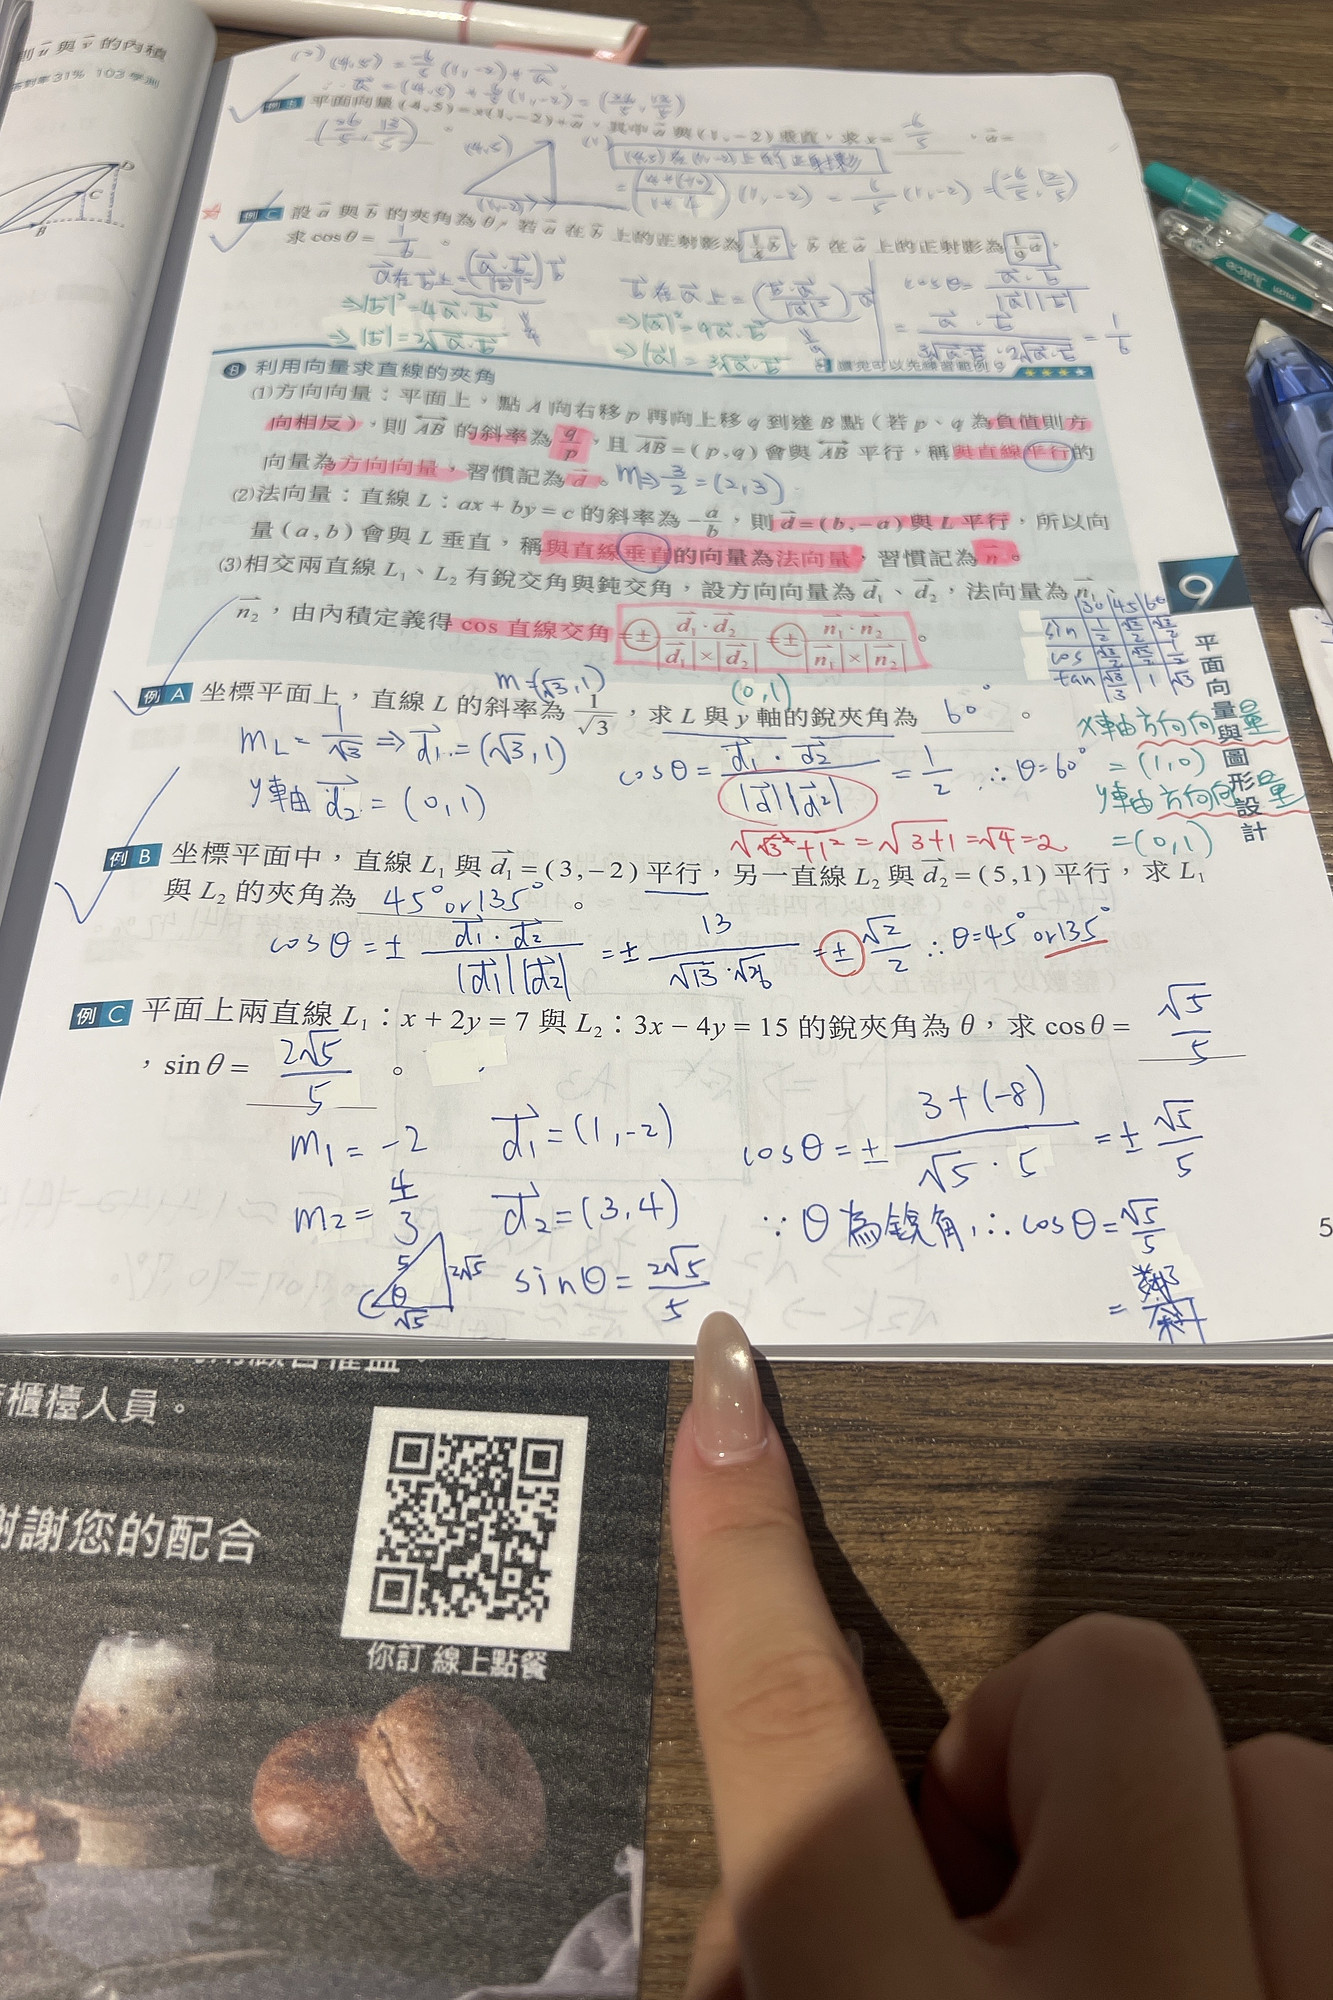 則 u 與 v 的內積
答對率31% 103學測
D
C
B
(4,5) = -6/5 (1,-2) + a
∴ a = (4,5) + 6/5 (1,-2) = (26/5, 13/5)
例 B 平面向量(4,5)=x(1,-2)+a,其中a與(1,-2)垂直,求x= -6/5 ,a=
(26/5, 13/5)。
(4,5)
(1,-2)
(1) (4,5)在(1,-2)上的正射影
= (4+(-10)/1+4)(1,-2) = -6/5 (1,-2) = (-6/5, 12/5)
例 C 設a與b的夾角為θ,若a在b上的正射影為1/4 b,b在a上的正射影為1/9 a,
求cosθ= 1/6 。
a在b上=(a·b/|b|²)b
⇒|b|²=4a·b
⇒|b|=2√a·b
1/4
b在a上=(b·a/|a|²)a
⇒|a|²=9a·b
⇒|a|=3√a·b
1/9
cosθ= a·b/|a||b|
= a·b/3√a·b·2√a·b = 1/6
B 利用向量求直線的夾角
讀完可以先練習範例9 ★★★★
(1)方向向量:平面上,點A向右移p再向上移q到達B點(若p、q為負值則方
向相反),則AB的斜率為q/p,且AB=(p,q)會與AB平行,稱與直線平行的
向量為方向向量,習慣記為d。 m⇒3/2=(2,3)
(2)法向量:直線L:ax+by=c的斜率為-a/b,則d=(b,-a)與L平行,所以向
量(a,b)會與L垂直,稱與直線垂直的向量為法向量,習慣記為n。
(3)相交兩直線L₁、L₂有銳交角與鈍交角,設方向向量為d₁、d₂,法向量為n₁、
n₂,由內積定義得cos直線交角=± d₁·d₂/|d₁|×|d₂| =± n₁·n₂/|n₁|×|n₂| 。
9
平面向量與圖形設計
30 45 60
sin 1/2 √2/2 √3/2
cos √3/2 √2/2 1/2
tan √3/3 1 √3
x軸方向向量
=(1,0)
y軸方向向量
=(0,1)
m=(√3,1)
(0,1)
例 A 坐標平面上,直線L的斜率為1/√3,求L與y軸的銳夾角為 60° 。
mL = 1/√3 ⇒ d₁=(√3,1)
y軸 d₂=(0,1)
cosθ= d₁·d₂/|d₁||d₂| = 1/2 ∴θ=60°
√√3²+1² = √3+1=√4=2
例 B 坐標平面中,直線L₁與d₁=(3,-2)平行,另一直線L₂與d₂=(5,1)平行,求L₁
與L₂的夾角為 45°or135° 。
cosθ=± d₁·d₂/|d₁||d₂| =± 13/√13·√26 =± √2/2 ∴θ=45°or135°
例 C 平面上兩直線L₁:x+2y=7與L₂:3x-4y=15的銳夾角為θ,求cosθ= √5/5
,sinθ= 2√5/5 。
m₁=-2 d₁=(1,-2)
m₂=4/3 d₂=(3,4)
cosθ=± 3+(-8)/√5·5 =± √5/5
∵θ為銳角,∴cosθ=√5/5
5
θ
√5
2√5
sinθ=2√5/5
= 鄰/斜
5
櫃檯人員。
謝謝您的配合
你訂 線上點餐
Juice